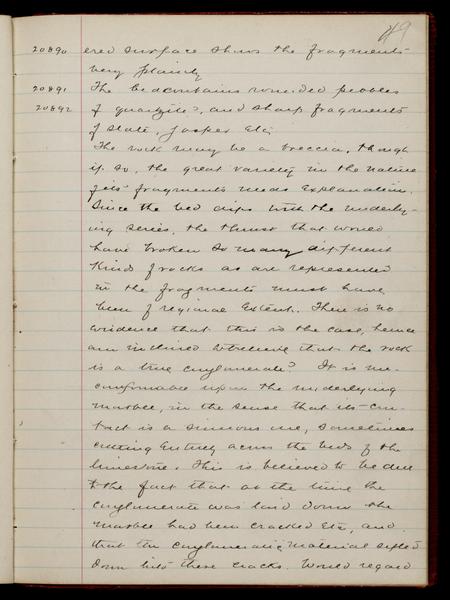 49
20890 ered surface shows the fragments
very plainly
20891 The bed contains rounded pebbles
20892 of quartzite?, and sharp fragments
of slate, jasper etc.
The rock may be a breccia, though
if so, the great variety in the nature
of its fragments needs explanation.
Since the bed dips with the underly-
ing series, the thrust that would
have broken so many different
kinds of rocks as are represented
in the fragments must have
been of regional extent. There is no
evidence that this is the case, hence
am inclined to believe that the rock
is a true conglomerate? It is un-
conformable upon the underlying
marble, in the sense that its con-
tact is a sinuous one, sometimes
cutting entirely across the beds of the
limestone. This is believed to be due
to the fact that at the time the
conglomerate was laid down the
marble had been cracked etc, and
that the conglomeratic material sifted
down into these cracks. Would regard